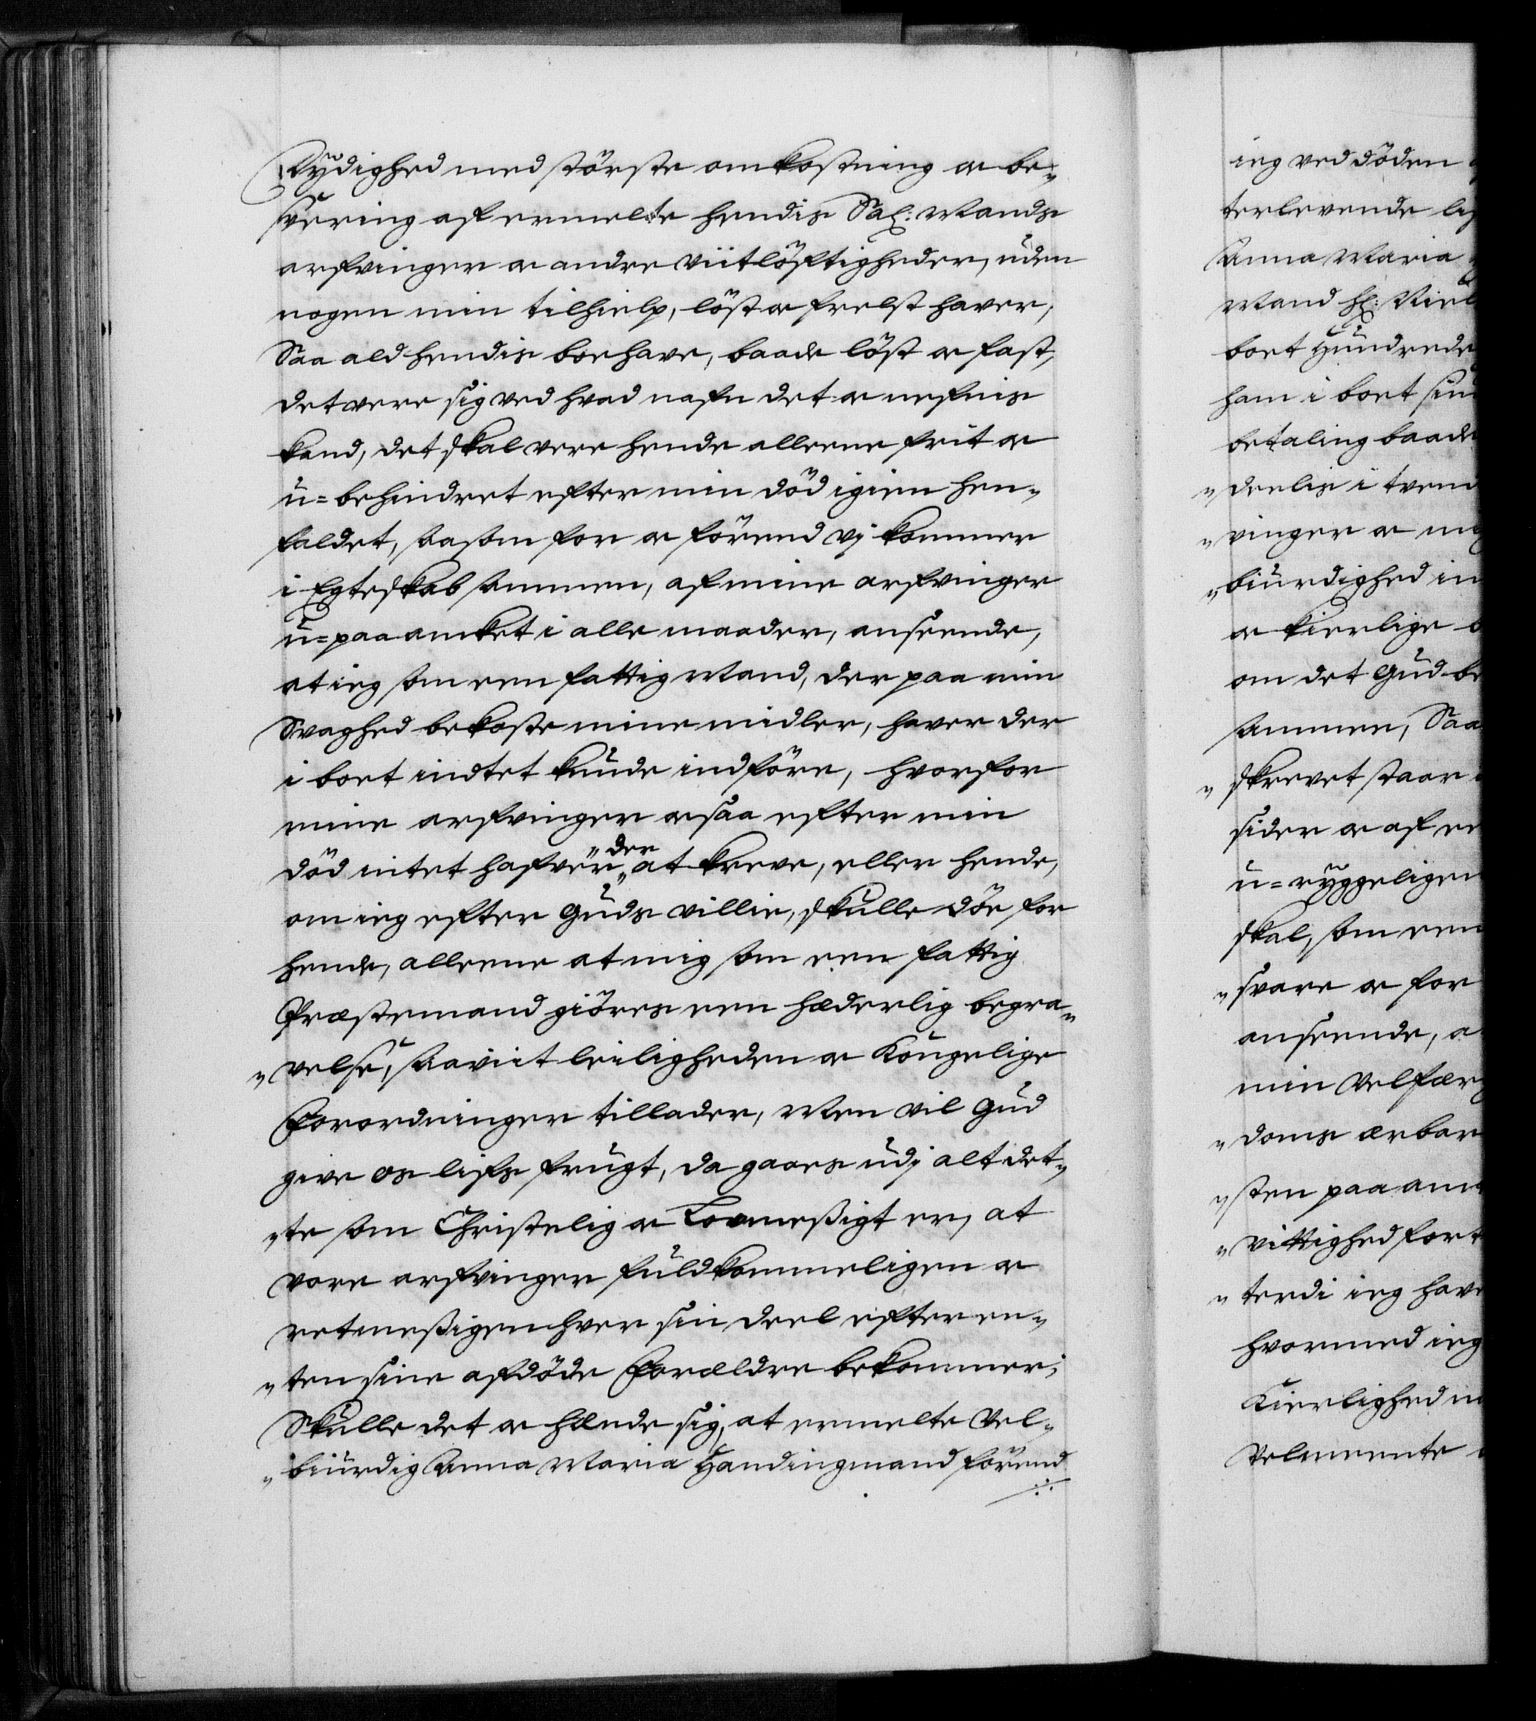 Dydighed med störste omkostning oc be„
svering af ermelte hendis Sal: Mands
arfvinger oc andre viitlöftigheder, uden
nogen min tilhielp, löst oc frelst haver,
Saa ald hendis boehave, baade löst oc fast,
det vere sig ved hvad nafn det oc nefnis
kand, det skal vere hende alleene frit oc
u=behindret efter min död igien hen„
faldet, saasom for oc förend vj kommer
i Egteskab sammen, af mine arfvinger
u=paaanket i alle maader, anseende,
at ieg som een fattig Mand, der paa min
Svaghed bekoste mine midler, haver der
i boet indtet kunde indföre, hvorfor
mine arfvinger ocsaa efter min
död intet hafver der at kreve, eller hende,
om ieg efter Guds villie, skulle döe for
hende, alleene at mig som een fattig
Præstemand giöres een hæderlig begra„
„velse, saaviit leiligheden oc Kongelige
Forordninger tillader, Men vil Gud
give os lifs frugt, da gaaes udj alt det„
„te som Christelig oc Lovmeßigt er, at
vore arfvinger fuldkommeligen oc
retmeßigen hver sin deel efter en„
„ten sine afdöde Forældre bekommer;
Skulle det oc hænde sig, at ermelte Vel„
„biurdig Anna Maria Handingmand förend
ieg ved döden
terlevende
Anna Maria
Mand
boet Hundrede
ham i boet
betaling baade
„deelis i
„vinger oc
„biurdighed
oc kierlige
om det Gud
sammen, Saa
„skrevet staar
sider oc af
u=ryggeligen
skal, som een
„svare oc for
anseende,
min Velfær
„doms ærbar
„sten paa
„vittighed
„terdi ieg
hvormed ieg
Kierlighed
Velmeente